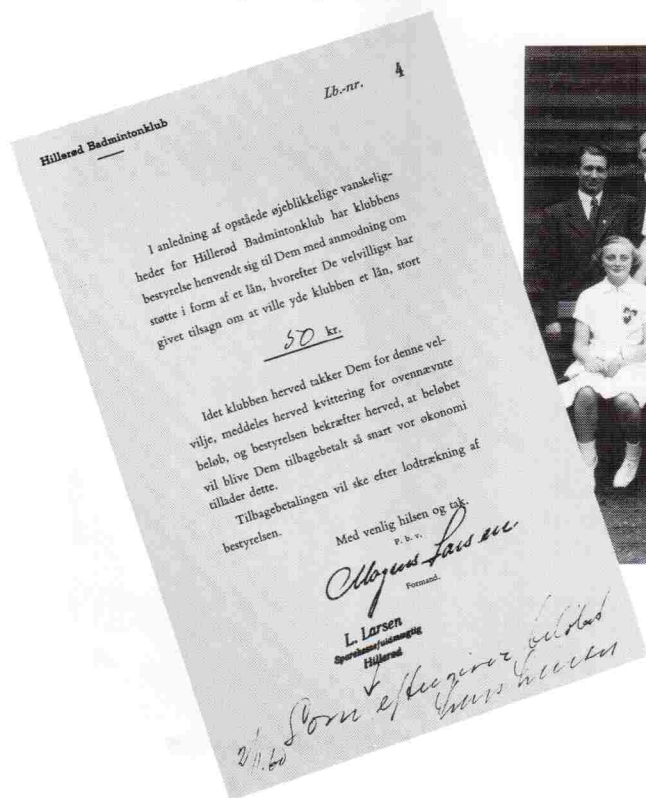 Lb.-nr. 4
Hillerød Badmintonklub
I anledning af opståede øjeblikkelige vanskelig-
heder for Hillerød Badmintonklub har klubbens
bestyrelse henvendt sig til Dem med anmodning om
støtte i form af et lån, hvorefter De velvilligst har
givet tilsagn om at ville yde klubben et lån, stort
50 kr.
Idet klubben herved takker Dem for denne vel-
vilje, meddeles herved kvittering for ovennævnte
beløb, og bestyrelsen bekræfter herved, at beløbet
vil blive Dem tilbagebetalt så snart vor økonomi
tillader dette.
Tilbagebetalingen vil ske efter lodtrækning af
bestyrelsen.
Med venlig hilsen og tak.
P. b. v.
Mogens Larsen
Formand.
L. Larsen
Sparekassefuldmægtig
Hillerød
Som eftergiver beløbet
Larsen